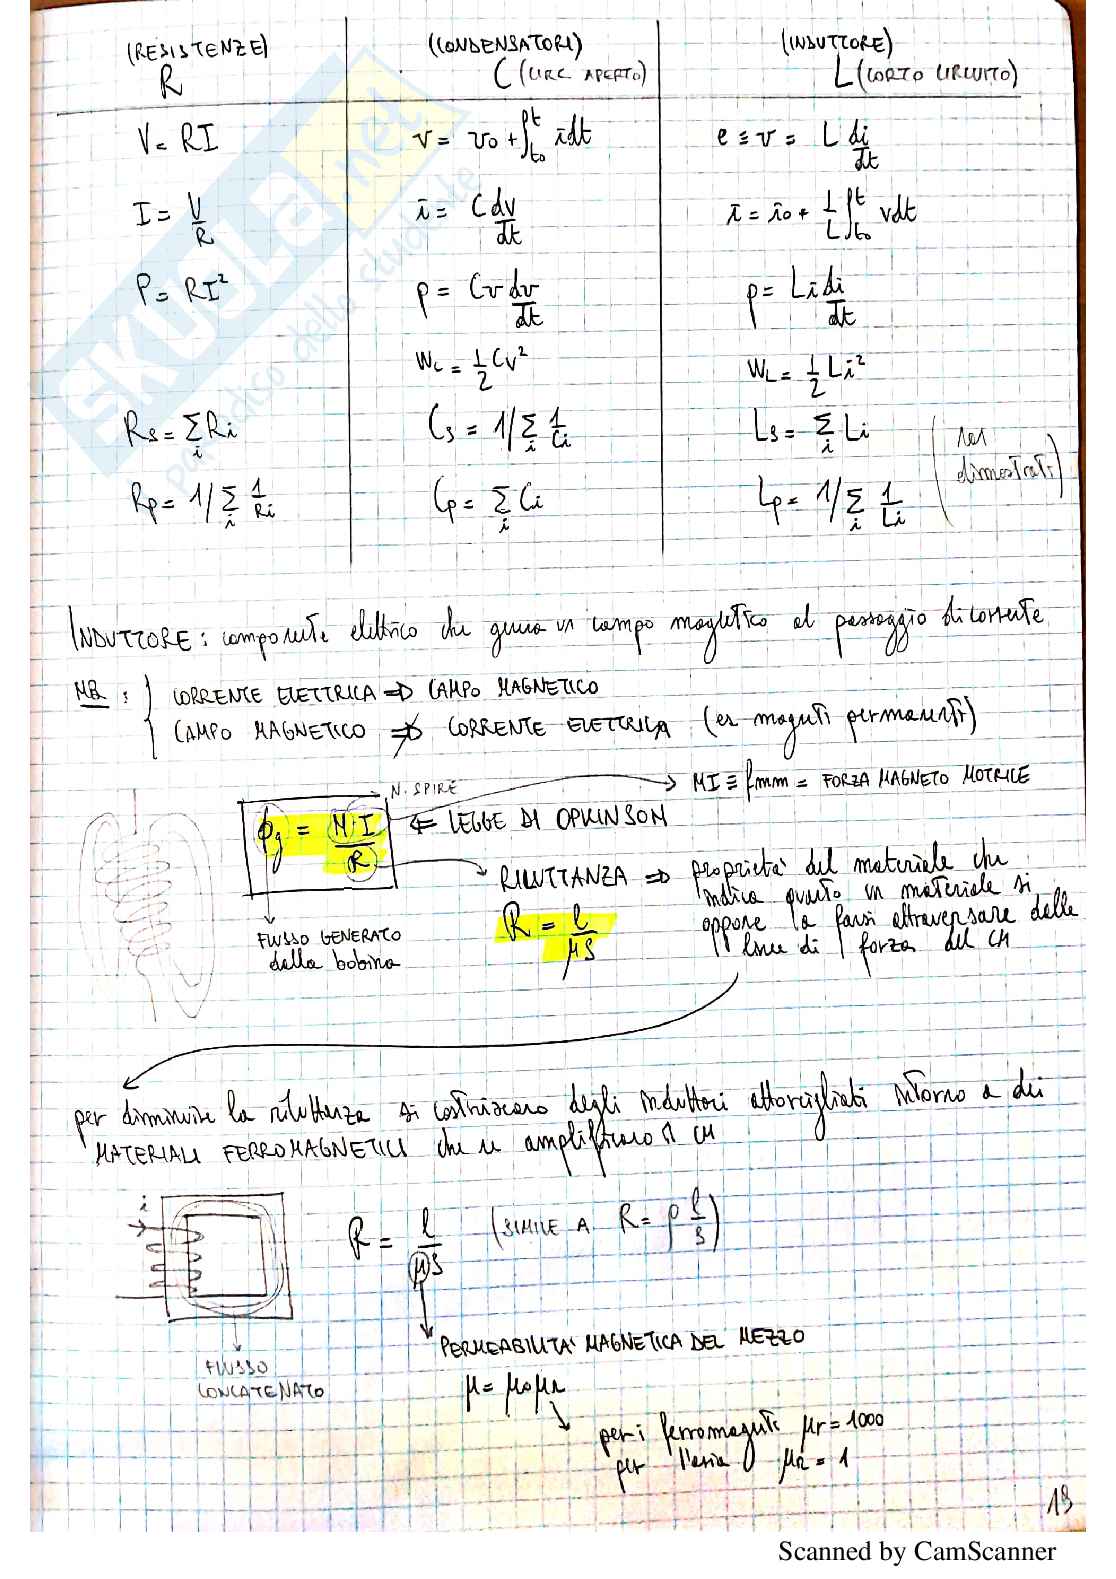 (RESISTENZE) (CONDENSATORI) (INDUTTORE)
R C (CIRC APERTO) L (CORTO CIRCUITO)
V = RI v = v0 + ∫t0^t idt e ≡ v = L di/dt
I = V/R i = C dv/dt i = i0 + 1/L ∫t0^t vdt
P = RI² p = Cv dv/dt p = Li di/dt
Wc = 1/2 Cv² WL = 1/2 Li²
Rs = Σi Ri Cs = 1/Σi 1/Ci Ls = Σi Li
Rp = 1/Σi 1/Ri Cp = Σi Ci Lp = 1/Σi 1/Li
dimostrati)
INDUTTORE: componente elettrico che genera un campo magnetico al passaggio di corrente
NB: CORRENTE ELETTRICA ⇒ CAMPO MAGNETICO
CAMPO MAGNETICO ⇏ CORRENTE ELETTRICA (es magneti permanenti)
N. SPIRE NI ≡ fmm = FORZA MAGNETO MOTRICE
ϕg = NI/R ⇐ LEGGE DI OPKINSON
RILUTTANZA ⇒ proprietà del materiale che
indica quanto un materiale si
oppone a farsi attraversare dalle
linee di forza del CM
R = l/μS
FLUSSO GENERATO
dalla bobina
per diminuire la riluttanza si costruiscono degli induttori attorcigliati intorno a dei
MATERIALI FERROMAGNETICI che ne amplificano il CM
i
R = l/μS (SIMILE A R = ρ l/S)
FLUSSO
CONCATENATO
PERMEABILITA' MAGNETICA DEL MEZZO
μ = μ0μr
per i ferromagneti μr = 1000
per l'aria μr = 1
19
Scanned by CamScanner
SKUOLA.net
paradiso dello studente